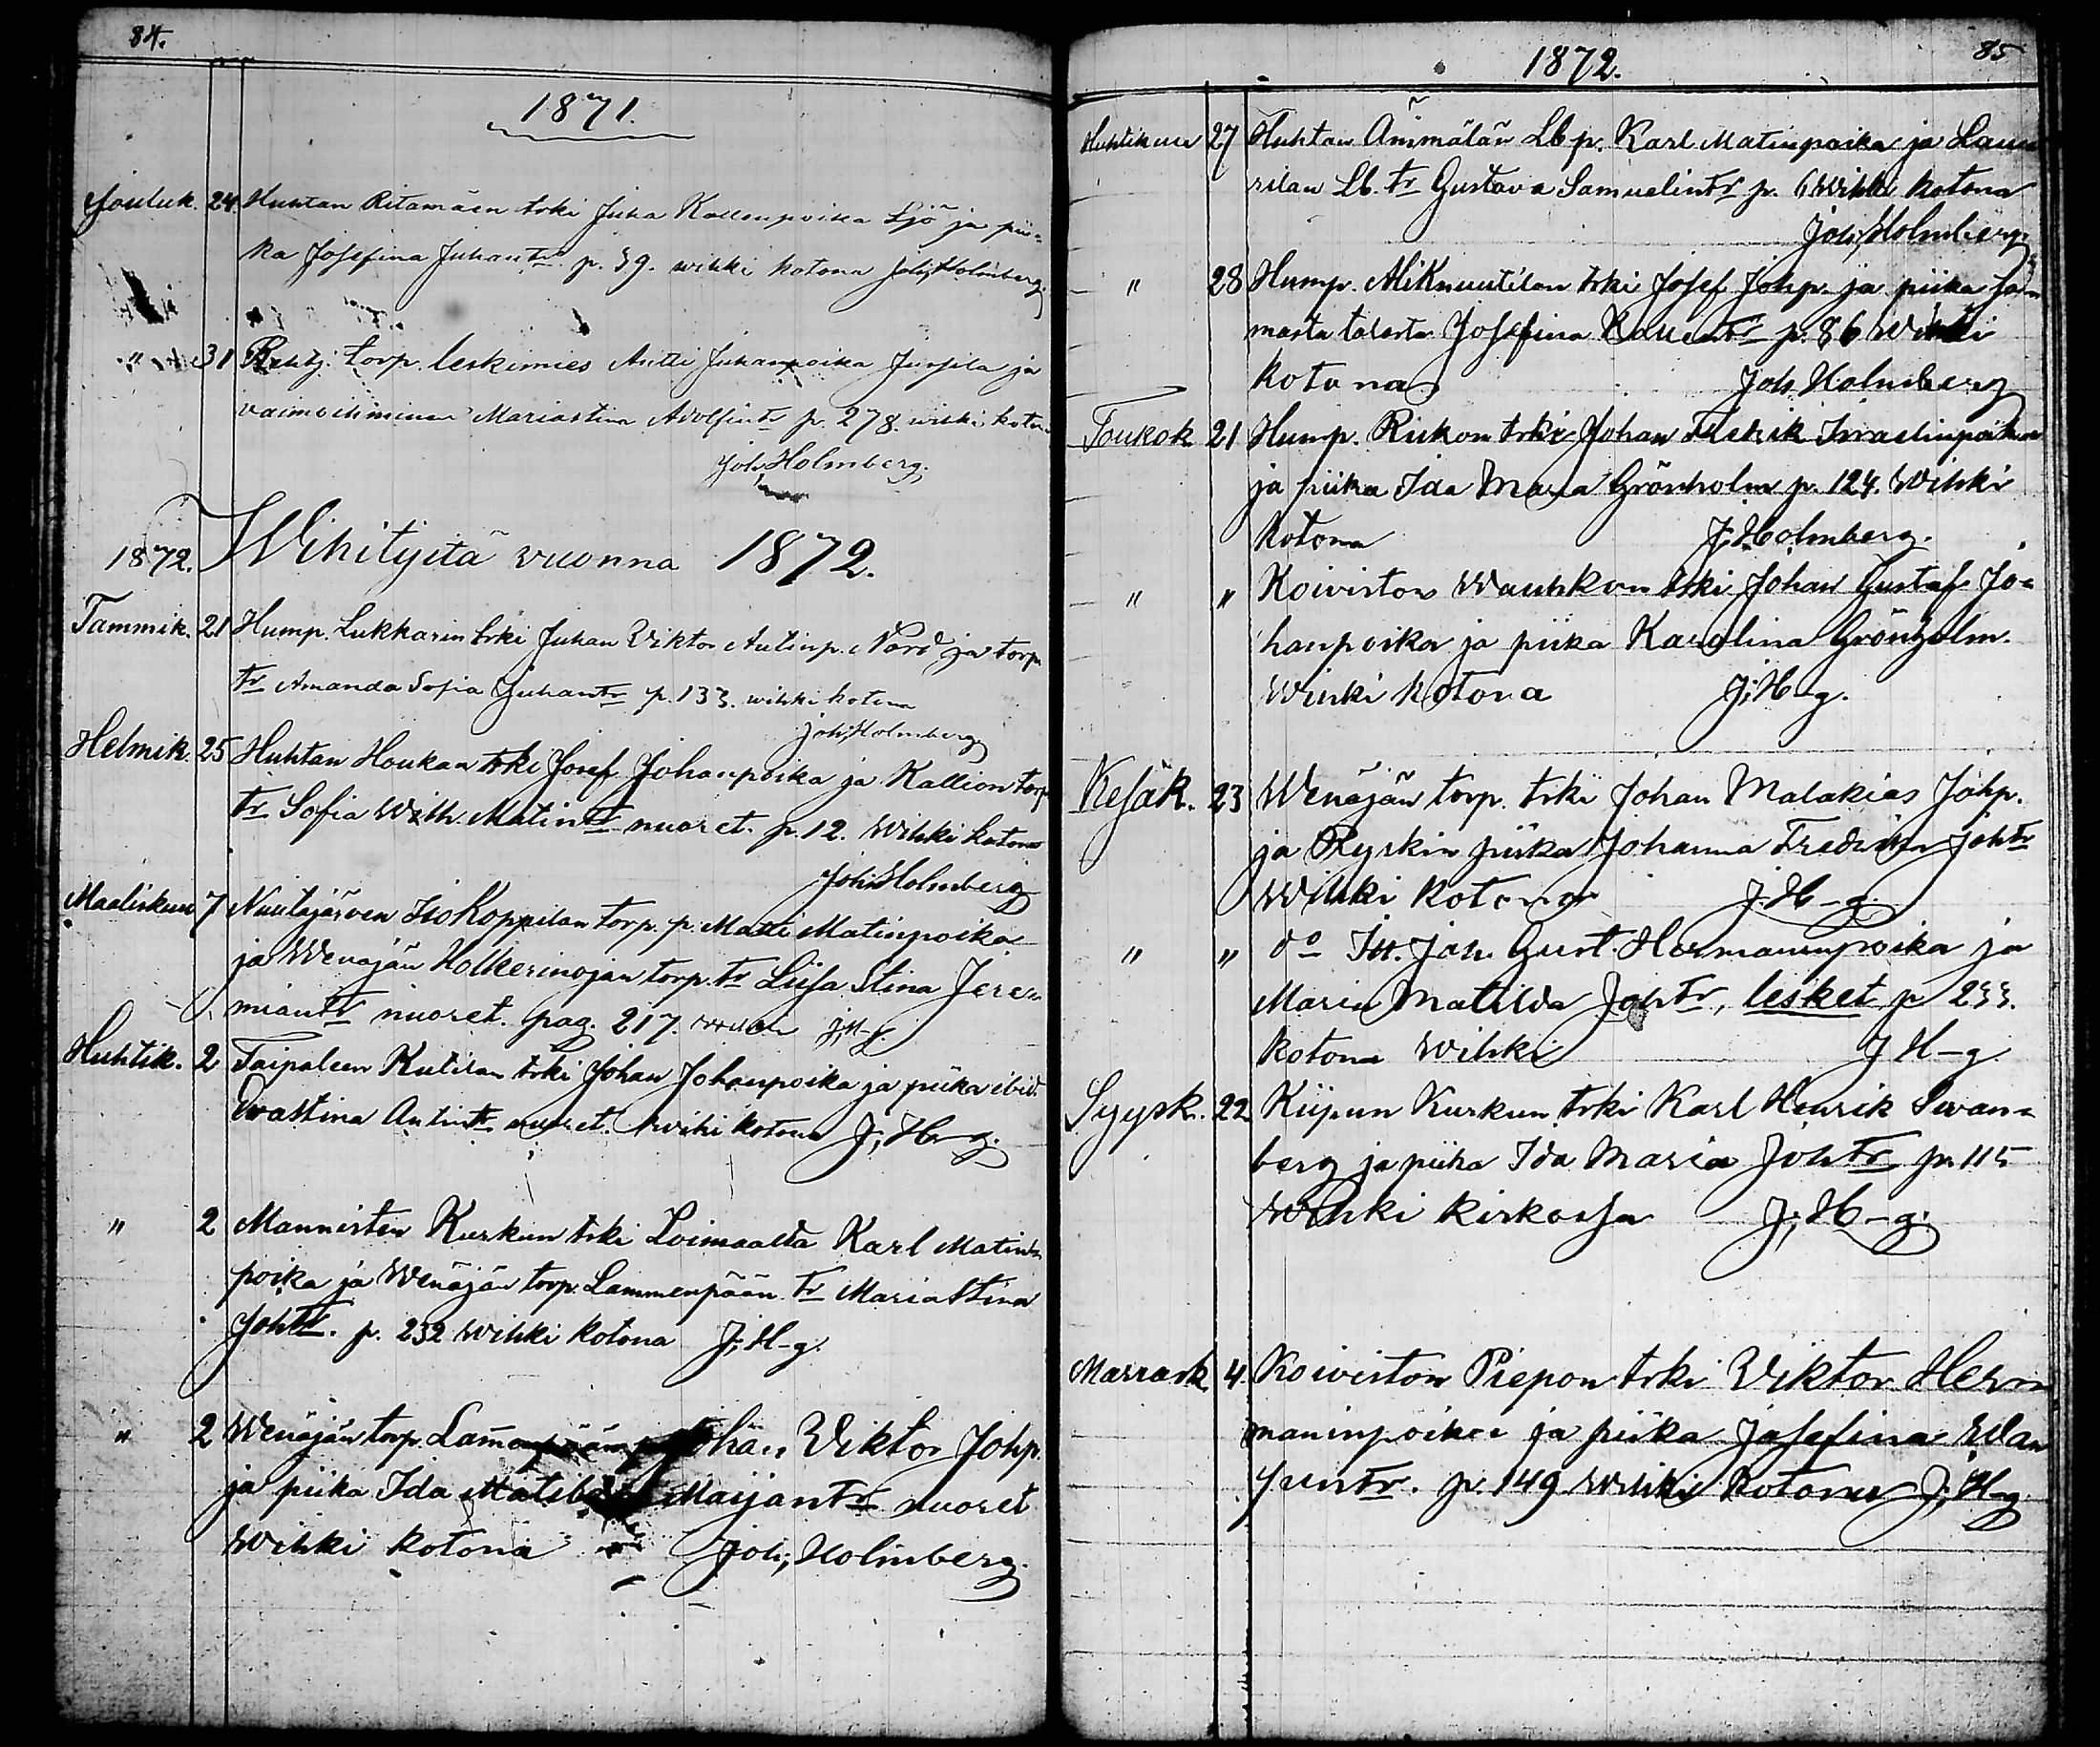 84.
1871.
Jouluk. 24 Huhtan Ritamäen trki Juha Kallenpoika Sjö ja pii-
ka Josefina Juhantr p. 59. wihki kotona Joh; Holmberg.
" 31 torp. leskimies Antti Juhanpoika Jussila ja
vaimoihminen Mariastina Adolfintr p. 278. wihki koton
Joh; Holmberg.
1872. Wihityitä vuonna 1872.
Tammik. 21 Hump. Lukkarin trki Juhan Viktor Antinp. Nord ja torp
tr Amanda Sofia Juhantr p. 133. wihki kotona
Joh; Holmberg
Helmik. 25 Huhtan Houkan trki Josef Johanpoika ja Kallion torp
tr Sofia Wilh. Matintr nuoret. p. 12. Wihki kotona
Joh; Holmberg
Maaliskuu 7 Nuutajärven IsoKoppilan torp. p. Matti Matinpoika
ja Wenäjän Holkerinojan torp. tr Liisa Stina Jere-
miantr nuoret. pag. 217. J; H-g.
Huhtik. 2 Taipaleen Kutilan trki Johan Johanpoika ja piika ibid.
Evastina Antintr nuoret. wihki kotona J; H-g.
" 2 Mannisten Kurkun trki Loimaalta Karl Matin-
poika ja Wenäjän torp. Lammenpään tr Maria Stina
Johtr. p. 232 Wihki kotona J; H-g.
" 2 Wenäjän torp. Lam̄enpään p Johan Viktor Johp.
ja piika Ida Matilda Maijantr nuoret
Wihki kotona Joh; Holmberg.
1872. 85
Huhtikuu 27 Huhtan Äm̄mälän Lb p. Karl Matinpoika ja Lau
rilan Lb. tr Gustava Samuelintr p. 6 Wihki kotona
Joh; Holmberg.
" 28 Hump. AliKnuutilan trki Josef Johp. ja piika sa-
masta talosta Josefina tr p. 86 Wihki
kotona. Joh. Holmberg
Toukok 21 Hump. Rukon trki Johan Fredrik Israelinpoika
ja piika Ida Maria Grönholm p. 124. Wihki
kotona J; Holmberg.
" " Koiviston Wauhkon trki Johan Gustaf Jo-
hanpoika ja piika Karolina Grönholm.
Wihki kotona J; H-g.
Kesäk. 23 Wenäjän torp. trki Johan Malakias Johp.
ja Ryskin piika Johanna Fredrika Johtr
Wihki kotona J. H-g.
" " do Itt. Joh. Gust. Hermaninpoika ja
Maria Matilda Johtr, lesket p 233.
kotona Wihki J H-g
Syysk. 22 Kiipun Kurkun trki Karl Henrik Swan-
berg ja piika Ida Maria Johtr p. 115
Wihki kirkossa J; H-g.
Marrask 4. Koiviston Piepon trki Viktor Her-
maninpoika ja piika Josefina Wilan
juntr. p. 149 Wihki kotona J; H-g